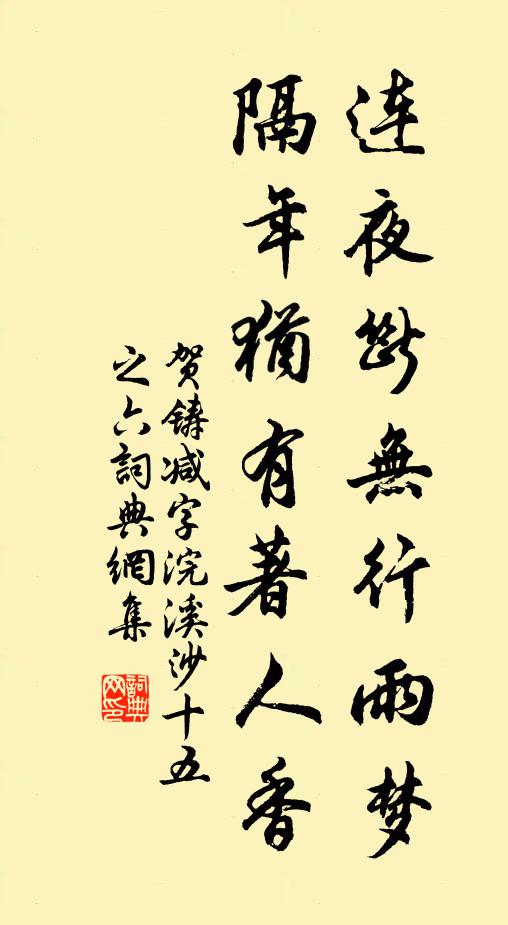 連夜斷無行雨梦
隔年猶有著人香
贺鑄减字浣溪沙十五
之六詞典網集
詞典网印